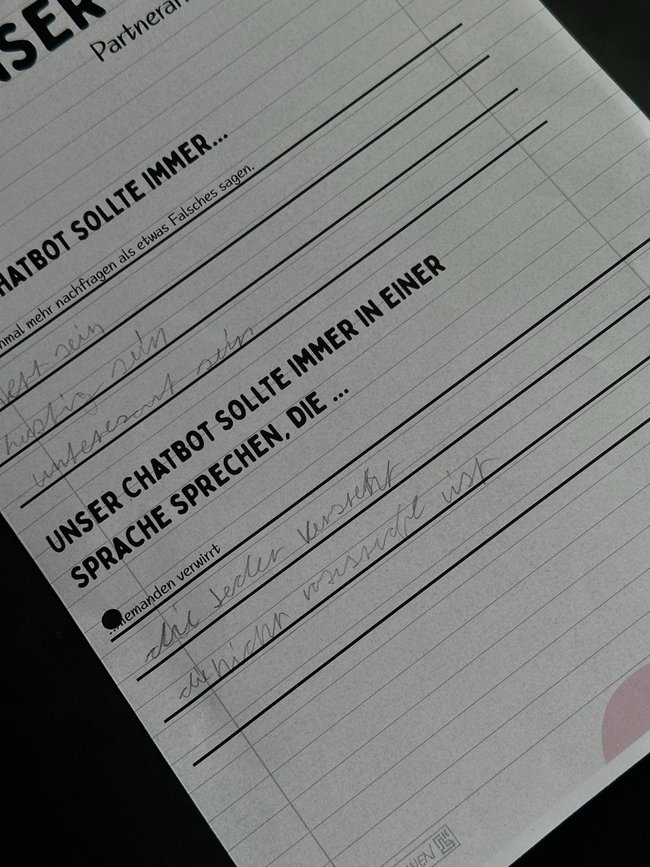 NSER
Partnerar
HATBOT SOLLTE IMMER...
nmal mehr nachfragen als etwas Falsches sagen.
sein
sein
sein
UNSER CHATBOT SOLLTE IMMER IN EINER
SPRACHE SPRECHEN, DIE ...
...niemanden verwirrt
die jeder versteht
die nicht ist
NEN